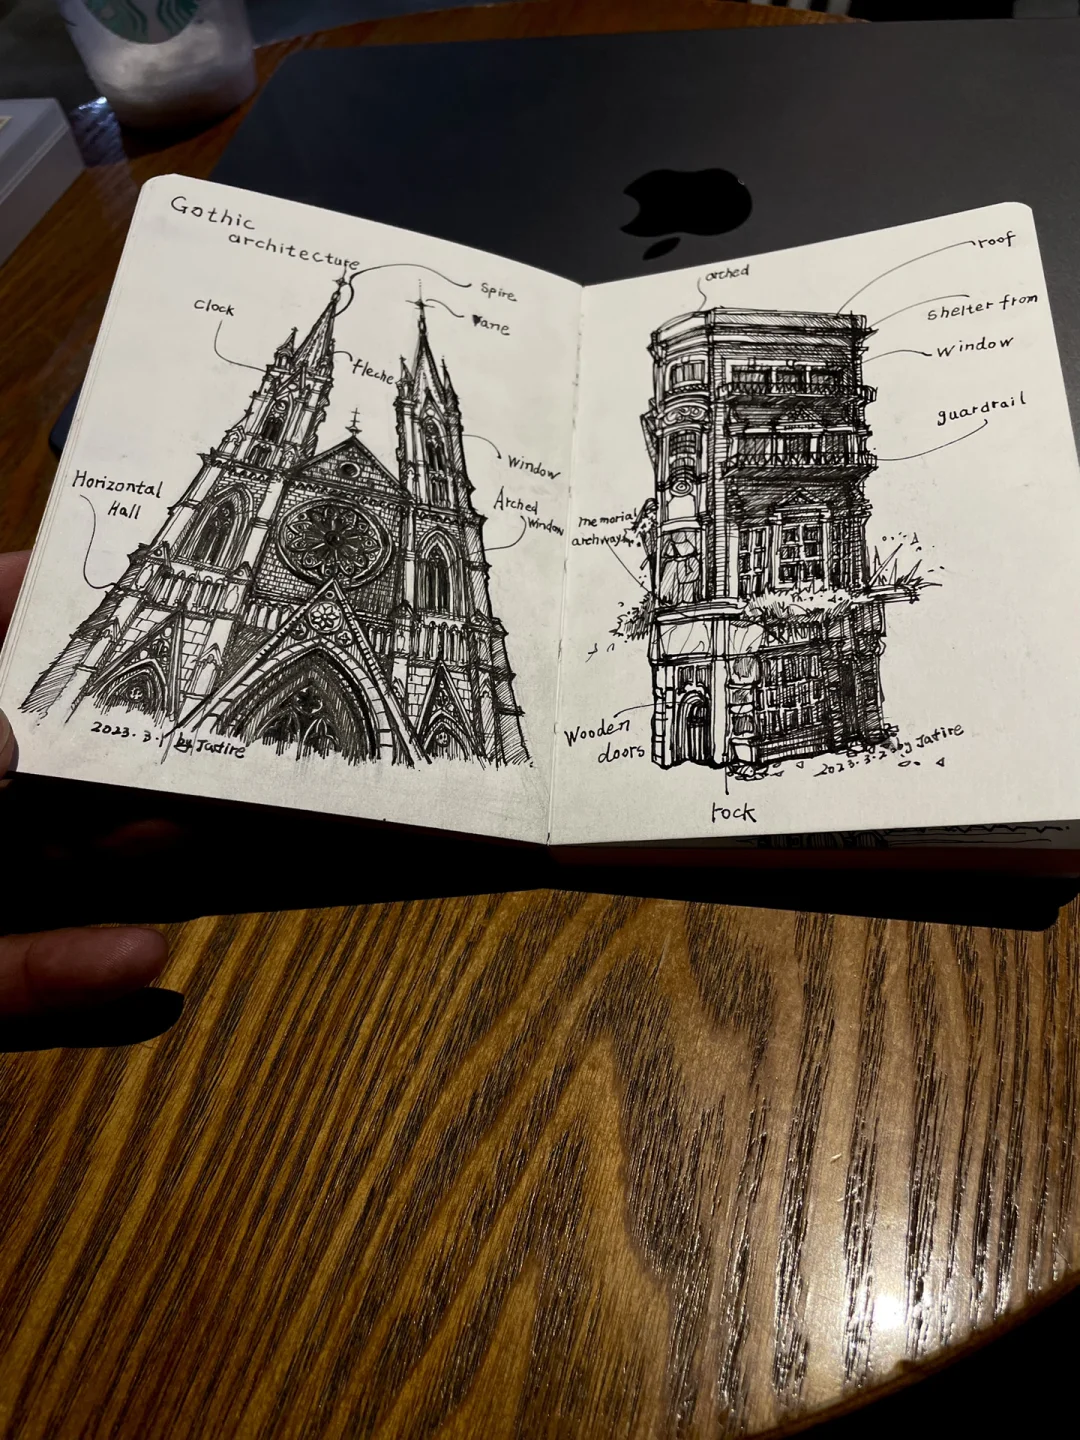 Gothic
architecture
Spire
Vane
Clock
fleche
Window
Arched
Window
Horizontal
Hall
2023.3.1 by Jatire
arched
roof
Shelter from
Window
guardrail
memorial
archway
Wooden
doors
2023.3.2 by Jatire
rock